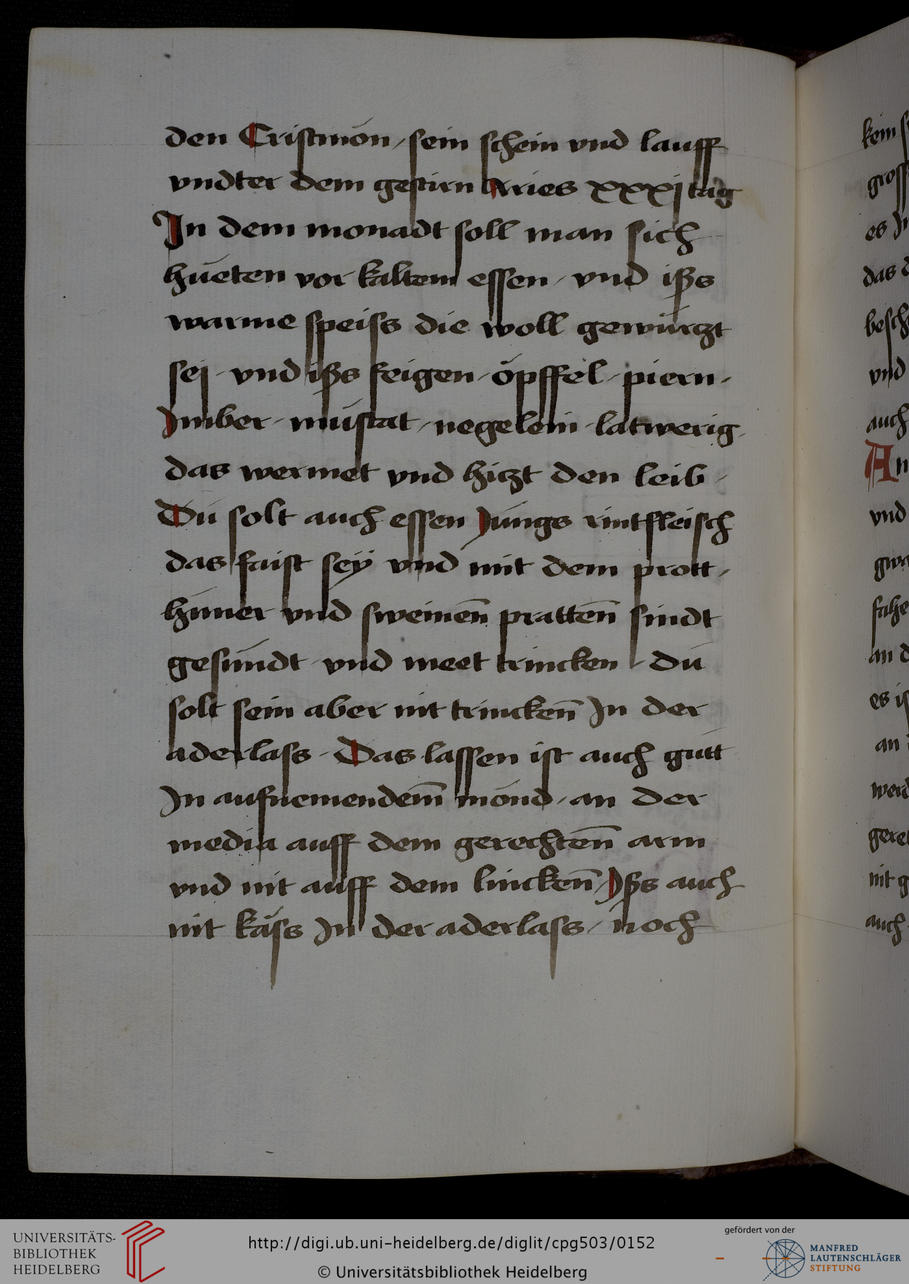 den Cristmon / sein schein vnd lauff
vndter dem gestirn Aries xxxj tag
In dem monadt soll man sich
hüeten vor kaltem essen / vnd ißs
warme speiss die woll gewürczt
sej / vnd ißs feigen / öpffel / piern /
Imber / müscat / negelein / latwerig /
das wermet vnd hiczt den leib /
Dü solt auch essen Jüngs rintfleisch
das faist seÿ vnd mit dem prott /
hüner vnd sweinen̄ pratten̄ sindt
gesündt / vnd meet trincken / dü
solt sein aber nit trincken̄ In der
aderlass / Das lassen ist auch gütt
In aufnemendem̄ mond / an der
media auff dem gerechten̄ arm
vnd nit auff dem lincken̄ / Ißs auch
nit käss In der aderlass / noch
kein
gross
es In
das
besch
vnd
auch
An
vnd
an d
es is
an
werd
nit g
auch
UNIVERSITÄTS-
BIBLIOTHEK
HEIDELBERG
http://digi.ub.uni-heidelberg.de/diglit/cpg503/0152
© Universitätsbibliothek Heidelberg
gefördert von der
MANFRED
LAUTENSCHLÄGER
STIFTUNG